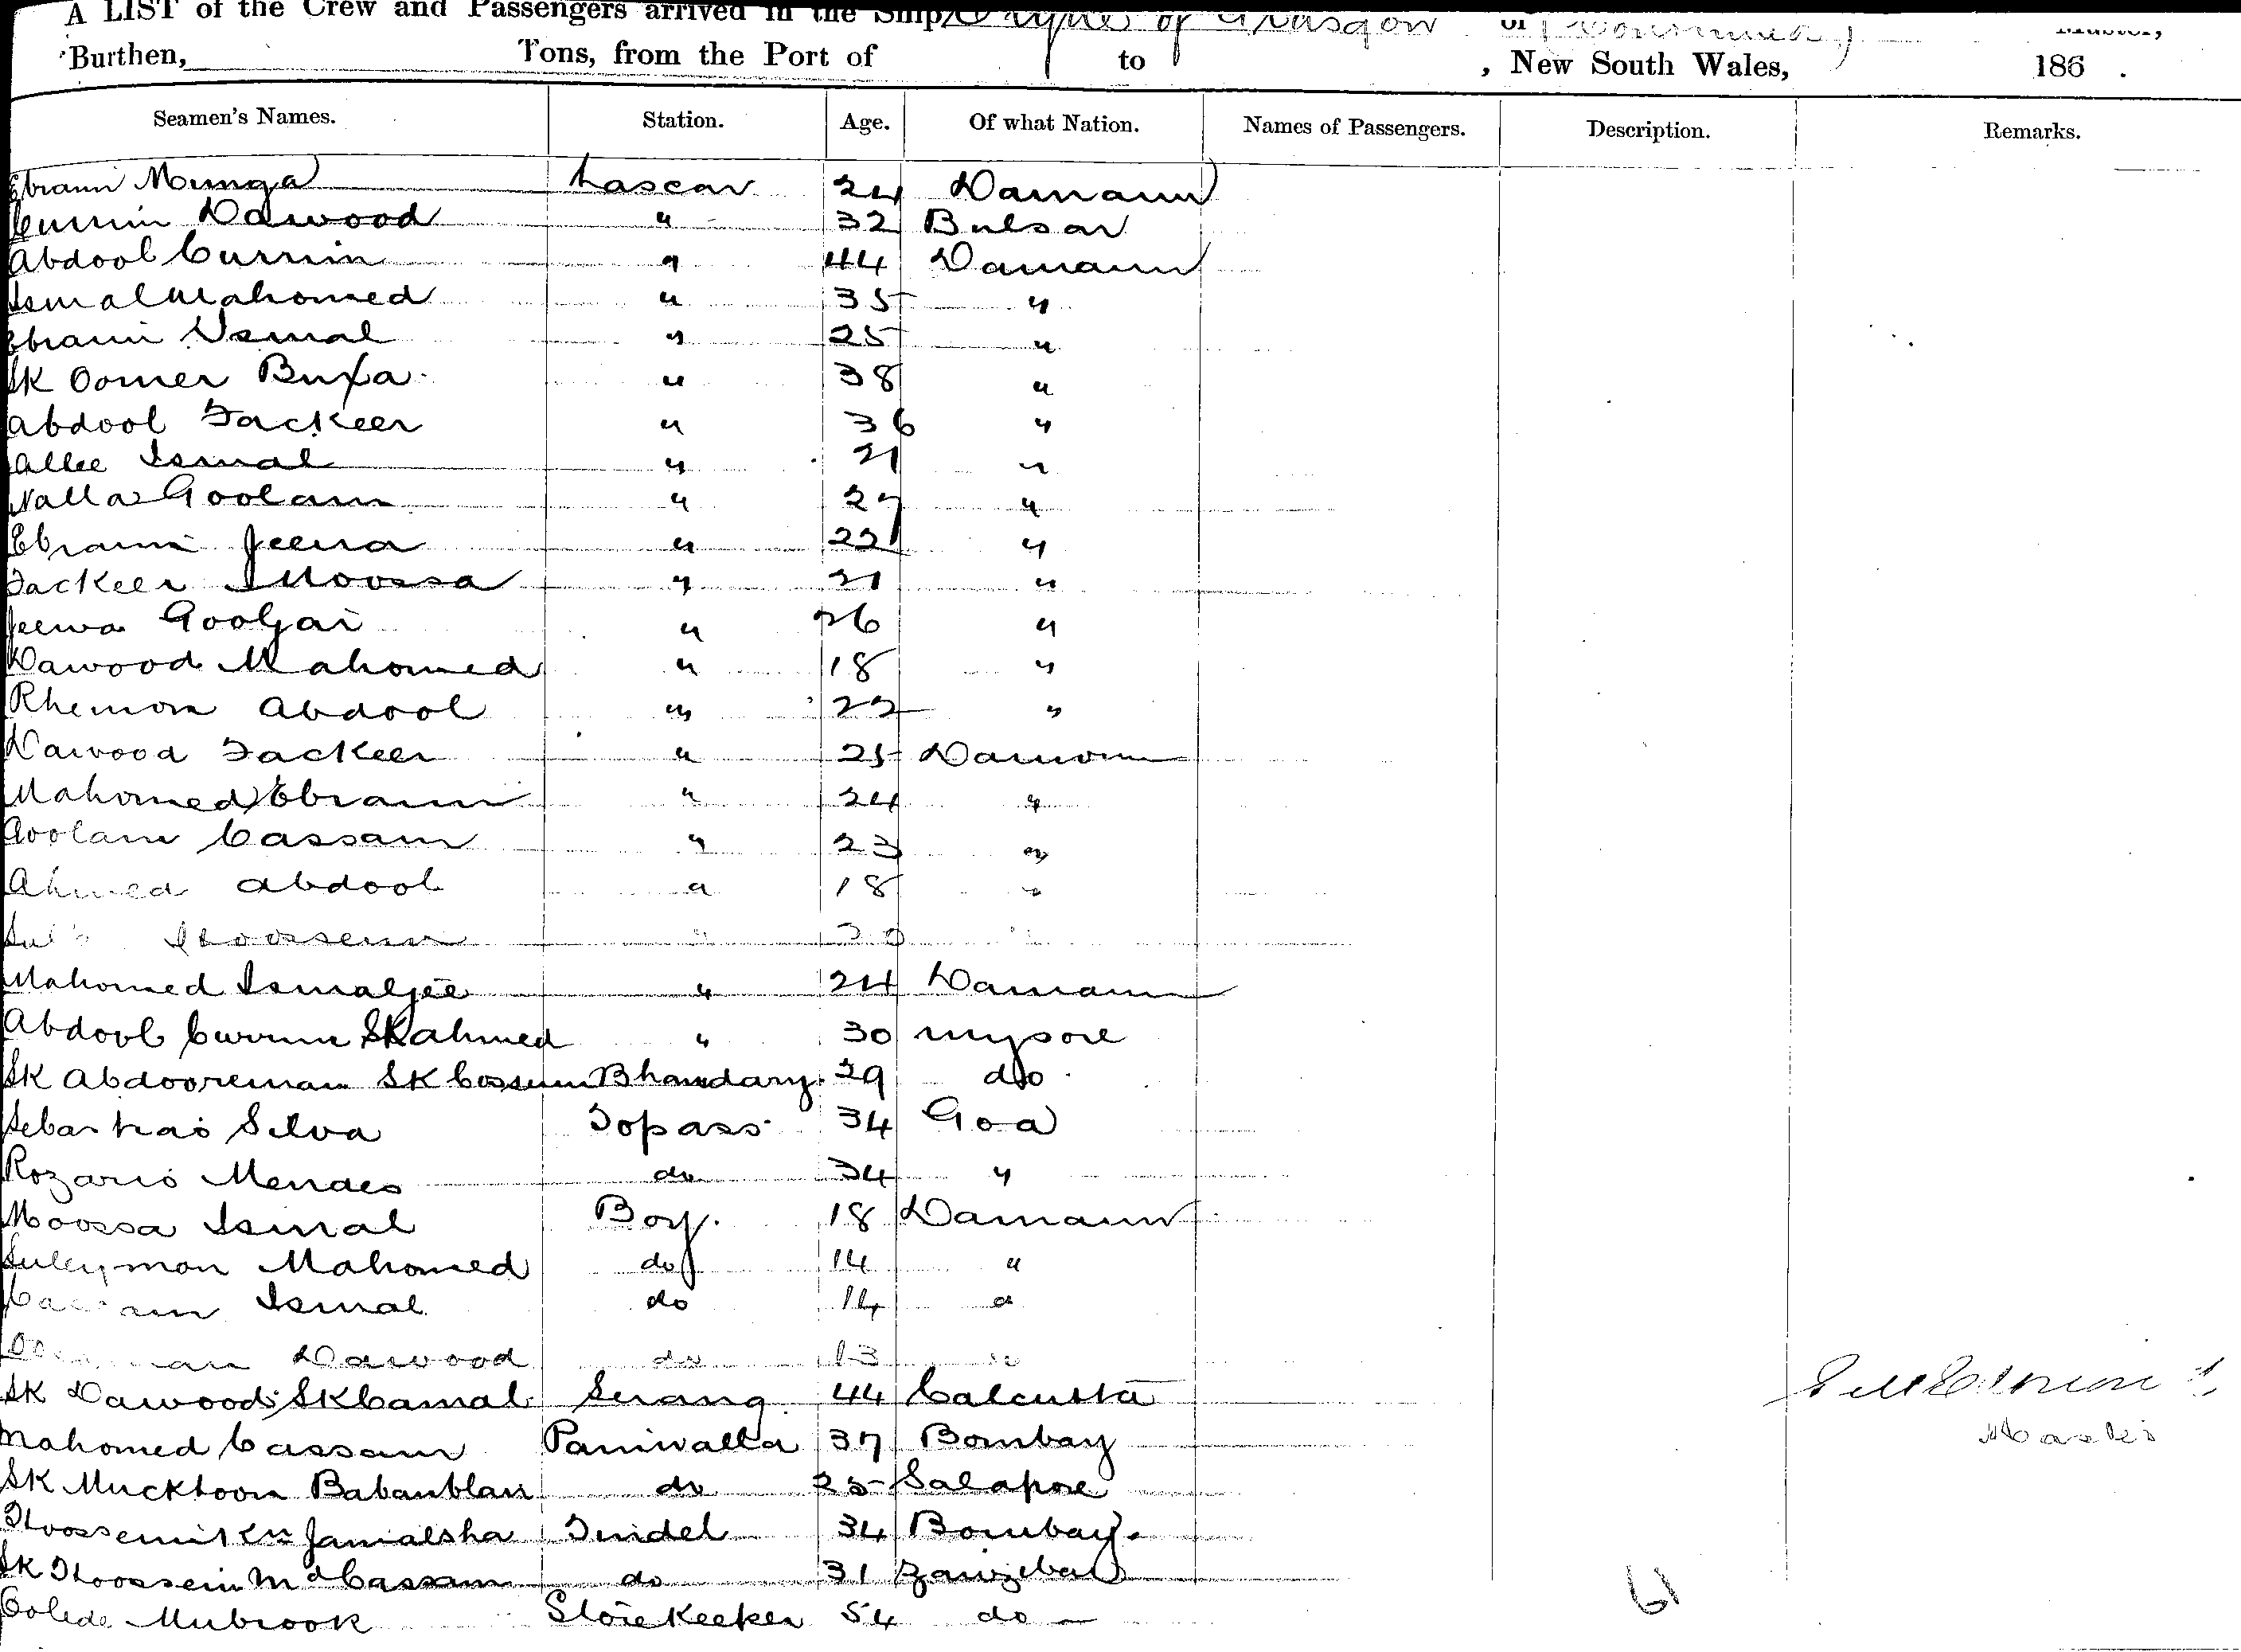 A LIST of the Crew and Passengers arrived in the Ship of Glasgow of Master,
Burthen, Tons, from the Port of to , New South Wales, 186 .
Seamen's Names. Station. Age. Of what Nation. Names of Passengers. Description. Remarks.
Ebraim Munga Lascar 24 Damaun
Currim Dawood " 32 Bulsar
Abdool Currim " 44 Damaun
Ismal Mahomed " 35 "
Ebraim Ismal " 25 "
SK Oomer Buxa " 38 "
Abdool Fackeer " 36 "
Allee Ismal " 21 "
Valla Goolam " 27 "
Ebraim Jeewa " 22 "
Fackeer Moossa " 21 "
Jeewa Gooljar " 26 "
Dawood Mahomed " 18 "
Rhemon Abdool " 22 "
Dawood Fackeer " 25 Damaun
Mahomed Ebraim " 24 "
Goolam Cassam " 23 "
Ahmed Abdool " 18 "
Hoossein "
Mahomed Ismaljee " 24 Damaun
Abdool Currim SK Ahmed " 30 Mysore
SK Abdooreman SK Cossum Bhandary 29 do
Sebastiao Silva Topass 34 Goa
Rozario Mendes do 34 "
Moossa Ismal Boy. 18 Damaun
Suleymon Mahomed do 14 "
Cassam Ismal do 14 "
Dawood do 13 "
SK Dawood SK Camal Serang 44 Calcutta
Mahomed Cassam Paniwalla 37 Bombay
SK Mucktoom do 25 Salapore
Jamalsha Tindel 34 Bombay.
SK Hoossein Md Cassam do 31 Zanzebar
Mubrook Store Keeker 54 do
Master
61